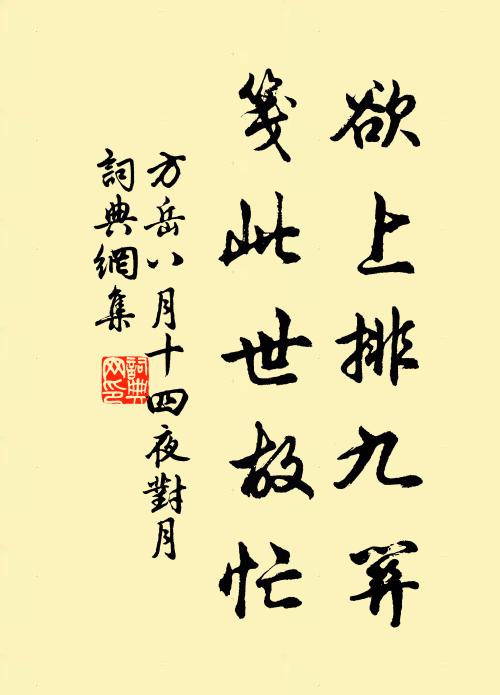 欲上排九關
箋此世故忙
方岳八月十四夜對月
詞典網集
詞典
网印